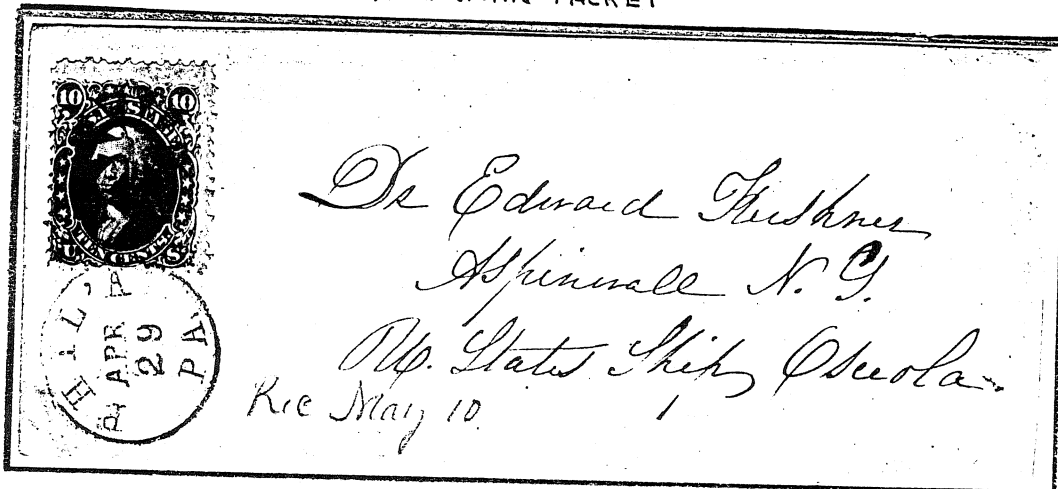 PACKET
10 10
TEN CENTS
U S
PHIL'A PA.
APR
29
Dr Edward Kershner
Aspinwall N. G.
U. States Ship Osceola
Rec May 10.